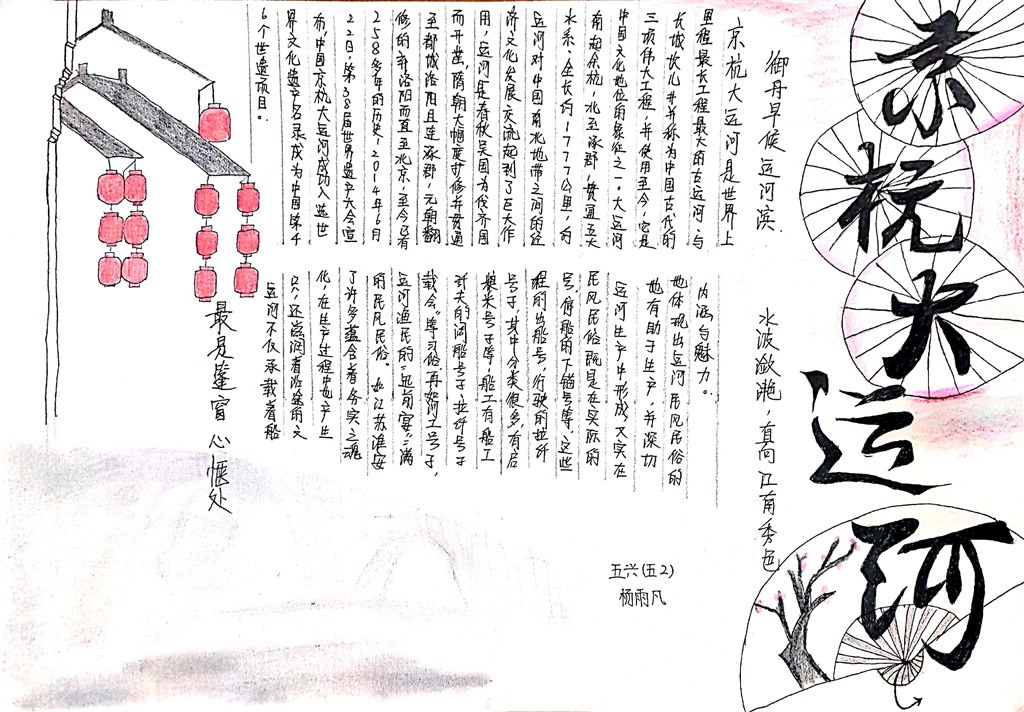 京杭大运河
御舟早候运河滨.
水波潋滟，直向江南秀色
京杭大运河是世界上
里程最长工程最大的古运河，与
长城坎儿井并称为中国古代的
三项伟大工程，并使用至今，它是
中国文化地位的象征之一。大运河
南起余杭，北至涿郡，贯通五大
水系，全长约1777公里，
运河对中国南北地带之间的经
济文化发展交流起到了巨大作
用，运河是春秋吴国为伐齐国
而开凿，隋朝大幅度扩修并贯通
至都城洛阳且连涿郡，元朝翻
修的弃洛阳而直至北京，至今已有
2500多年的历史，2014年6月
22日，第38届世界遗产大会宣
布，中国京杭大运河成功入选世
界文化遗产名录成为中国第4
6个世遗项目。
内涵与魅力。
地体现出运河民风民俗的
也有助于生产，并深切
运河生产中形成，又实在
民风民俗既是在实际的
号，停船的下锚号等，这些
程的出船号，行驶的拉纤
号子，其中分类很多，有启
粮米号子等，船工有船工
纤夫的闸船号子，拉纤号子
载会"等习俗，再如河工号子，
运河渔民的"汛前宴"，"满
的民风民俗。如江苏淮安
了许多蕴含着务实之魂
化，在生产过程中也产生
只，还滋润着沿途的文
运河不仅承载着船
最是篷窗心惬处
五六(五2)
杨雨凡